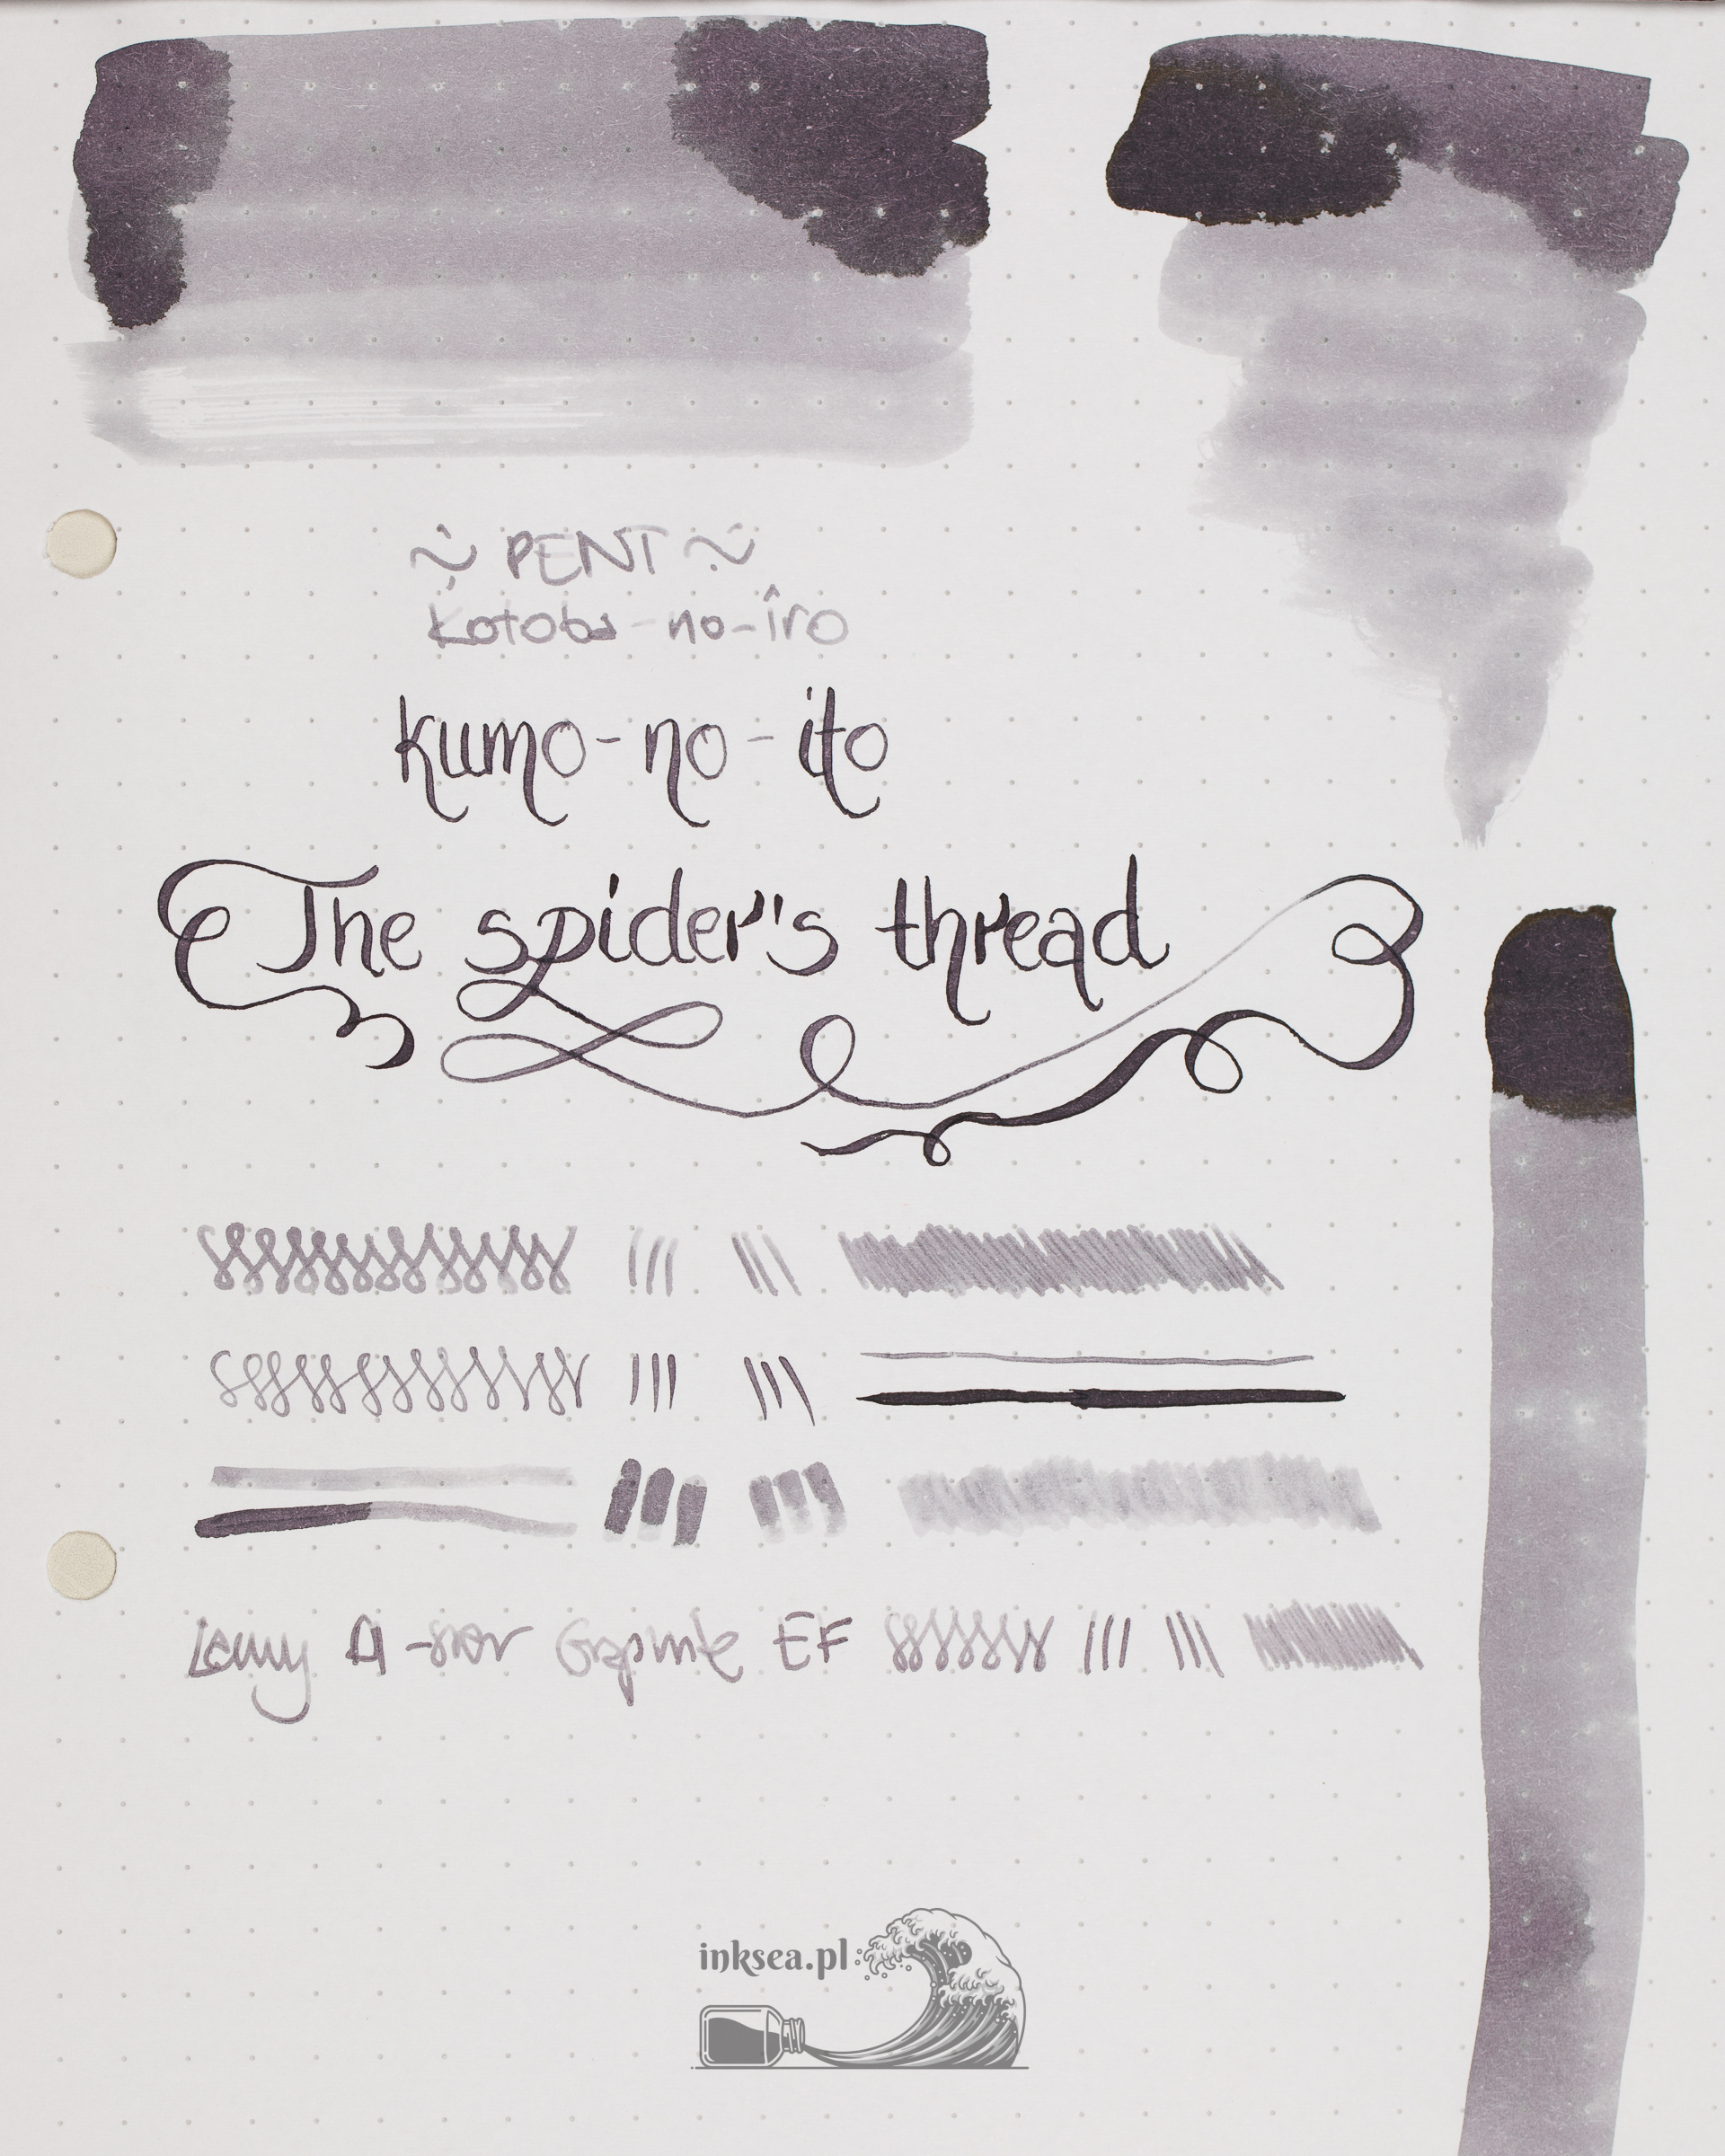 ~ PENT ~
kotoba-no-iro
kumo-no-ito
The spider's thread
Lamy Al-star Graphite EF
inksea.pl